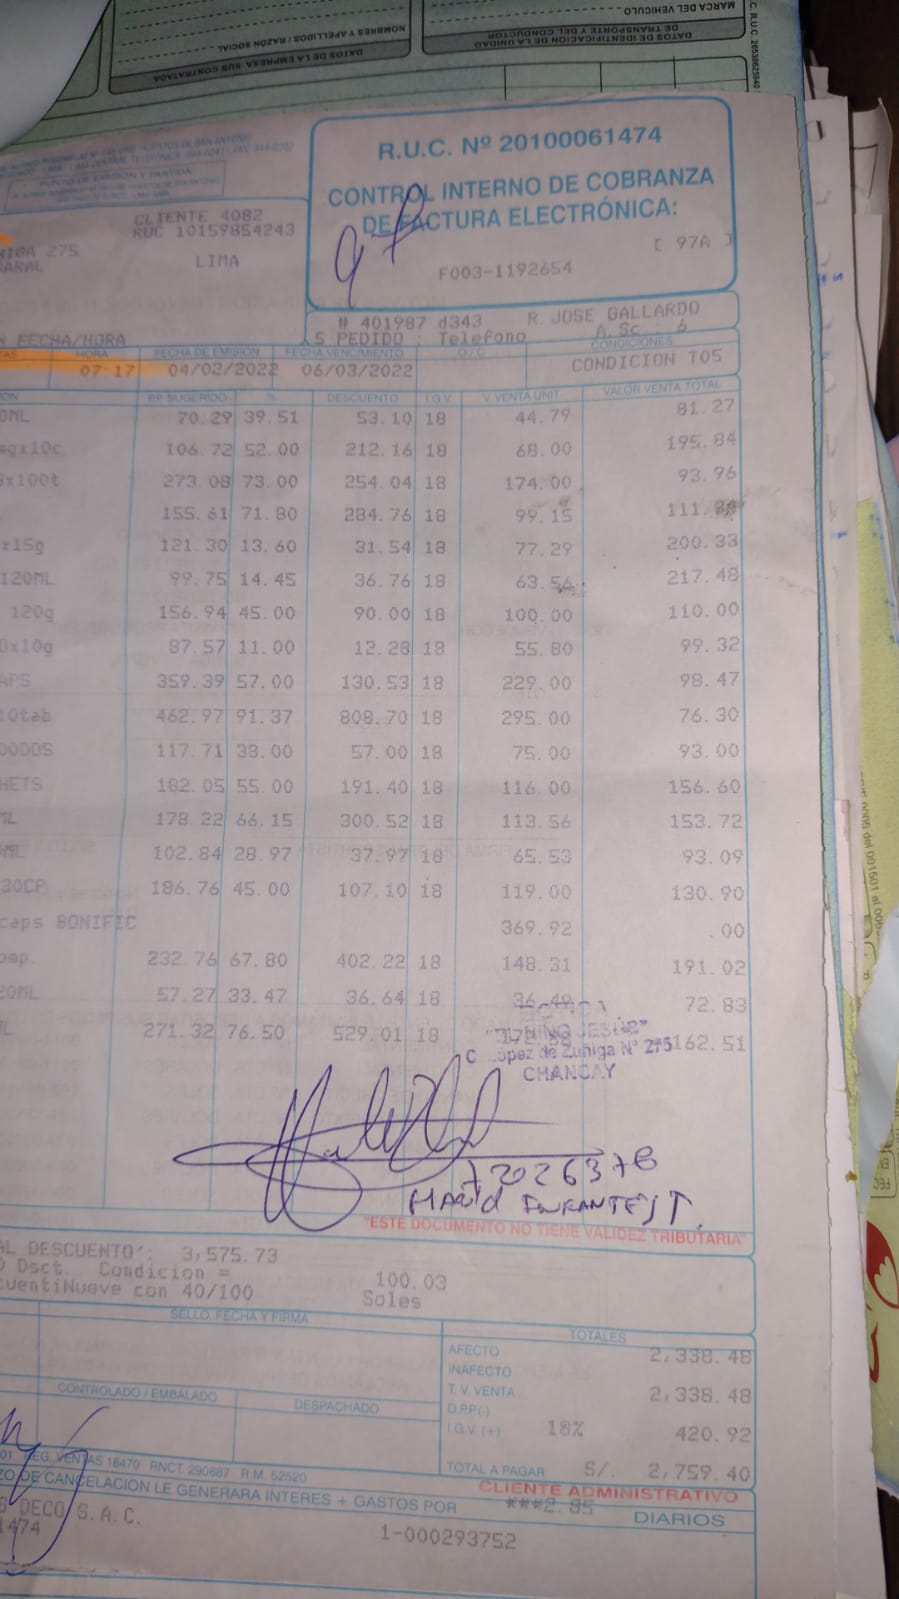 MARCA DEL VEHICULO
DATOS DE IDENTIFICACION DE LA UNIDAD
DE TRANSPORTE Y DEL CONDUCTOR
NOMBRES Y APELLIDOS / RAZÓN SOCIAL
DATOS DE LA EMPRESA SUB CONTRATADA
R.U.C. Nº 20100061474
CONTROL INTERNO DE COBRANZA
DE FACTURA ELECTRÓNICA:
[ 97A ]
F003-1192654
PUNTO DE EMISION Y PARTIDA
CLIENTE 4082
RUC 10159854243
275
LIMA
# 401987 d343 R. JOSE GALLARDO
FECHA/HORA S PEDIDO : Telefono A.Sc : 6
HORA FECHA DE EMISIÓN FECHA VENCIMIENTO O/C CONDICIONES
07-17 04/02/2022 06/03/2022 CONDICION T05
PP SUGERIDO % DESCUENTO I.G.V V. VENTA UNIT VALOR VENTA TOTAL
0ML 70.29 39.51 53.10 18 44.79 81.27
mgx10c 106.72 52.00 212.16 18 68.00 195.84
x100t 273.08 73.00 254.04 18 174.00 93.96
155.61 71.80 284.76 18 99.15
x15g 121.30 13.60 31.54 18 77.29 200.33
120ML 99.75 14.45 36.76 18 63.56 217.48
120g 156.94 45.00 90.00 18 100.00 110.00
0x10g 87.57 11.00 12.28 18 55.80 99.32
APS 359.39 57.00 130.53 18 229.00 98.47
10tab 462.97 91.37 808.70 18 295.00 76.30
ODOS 117.71 38.00 57.00 18 75.00 93.00
HETS 182.05 55.00 191.40 18 116.00 156.60
ML 178.22 66.15 300.52 18 113.56 153.72
ML 102.84 28.97 37.97 18 65.53 93.09
30CP 186.76 45.00 107.10 18 119.00 130.90
caps BONIFIC 369.92 .00
omp. 232.76 67.80 402.22 18 148.31 191.02
20ML 57.27 33.47 36.64 18 36.49 72.83
L 271.32 76.50 529.01 18 162.51
BOTICA
"NIÑO JESUS"
López de Zuñiga Nº 275
CHANCAY
"ESTE DOCUMENTO NO TIENE VALIDEZ TRIBUTARIA"
AL DESCUENTO': 3,575.73
Dsct. Condicion = 100.03
cuentiNueve con 40/100 Soles
SELLO, FECHA Y FIRMA
TOTALES
AFECTO 2,338.48
INAFECTO
T.V. VENTA 2,338.48
D.PP(-)
I.G.V.(+) 18% 420.92
TOTAL A PAGAR S/. 2,759.40
CONTROLADO / EMBALADO
DESPACHADO
REG. VENTAS 18470 RNCT. 290887 R.M. 52520
CLIENTE ADMINISTRATIVO
ZO DE CANCELACION LE GENERARA INTERES + GASTOS POR ***2.85 DIARIOS
DECO S.A.C.
1474
1-000293752